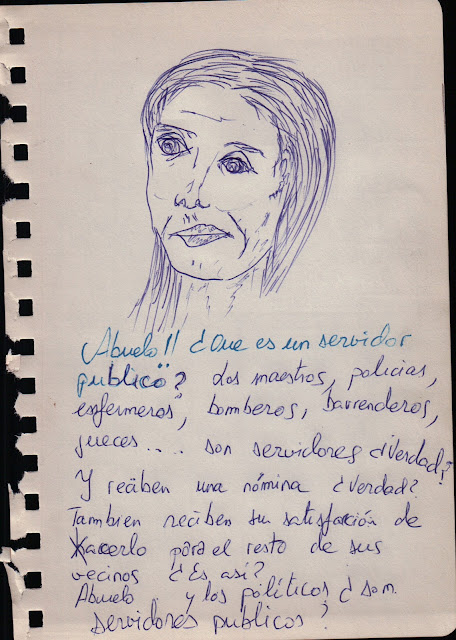 ¡Abuelo!! ¿Que es un servidor
publico"?  Los maestros, policias,
enfermeros", bomberos, barrenderos,
jueces.... son servidores ¿Verdad?
Y reciben una nómina ¿Verdad?
Tambien reciben su satisfacción de
hacerlo para el resto de sus
vecinos ¿Es así?
Abuelo.. y los políticos ¿son
servidores publicos?